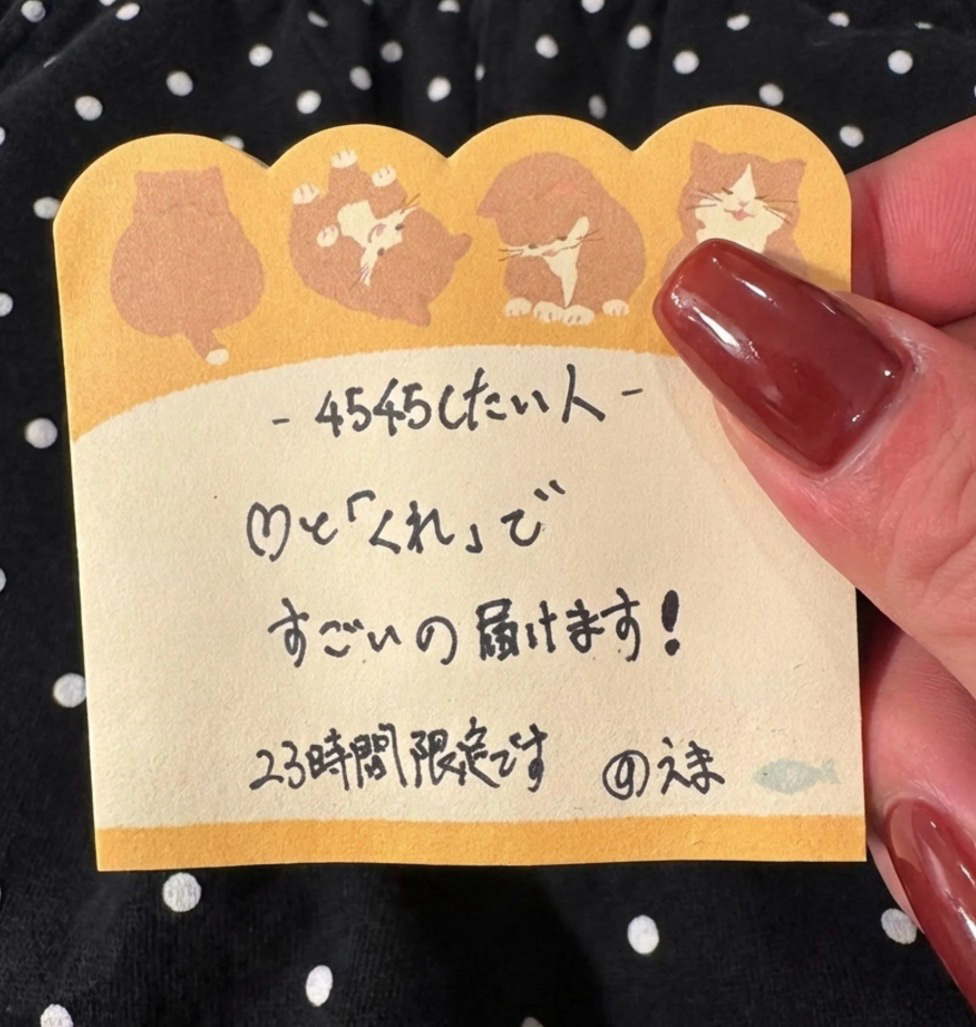 - 4545したい人 -
♡と「くれ」で
すごいの届けます!
23時間限定です @えま